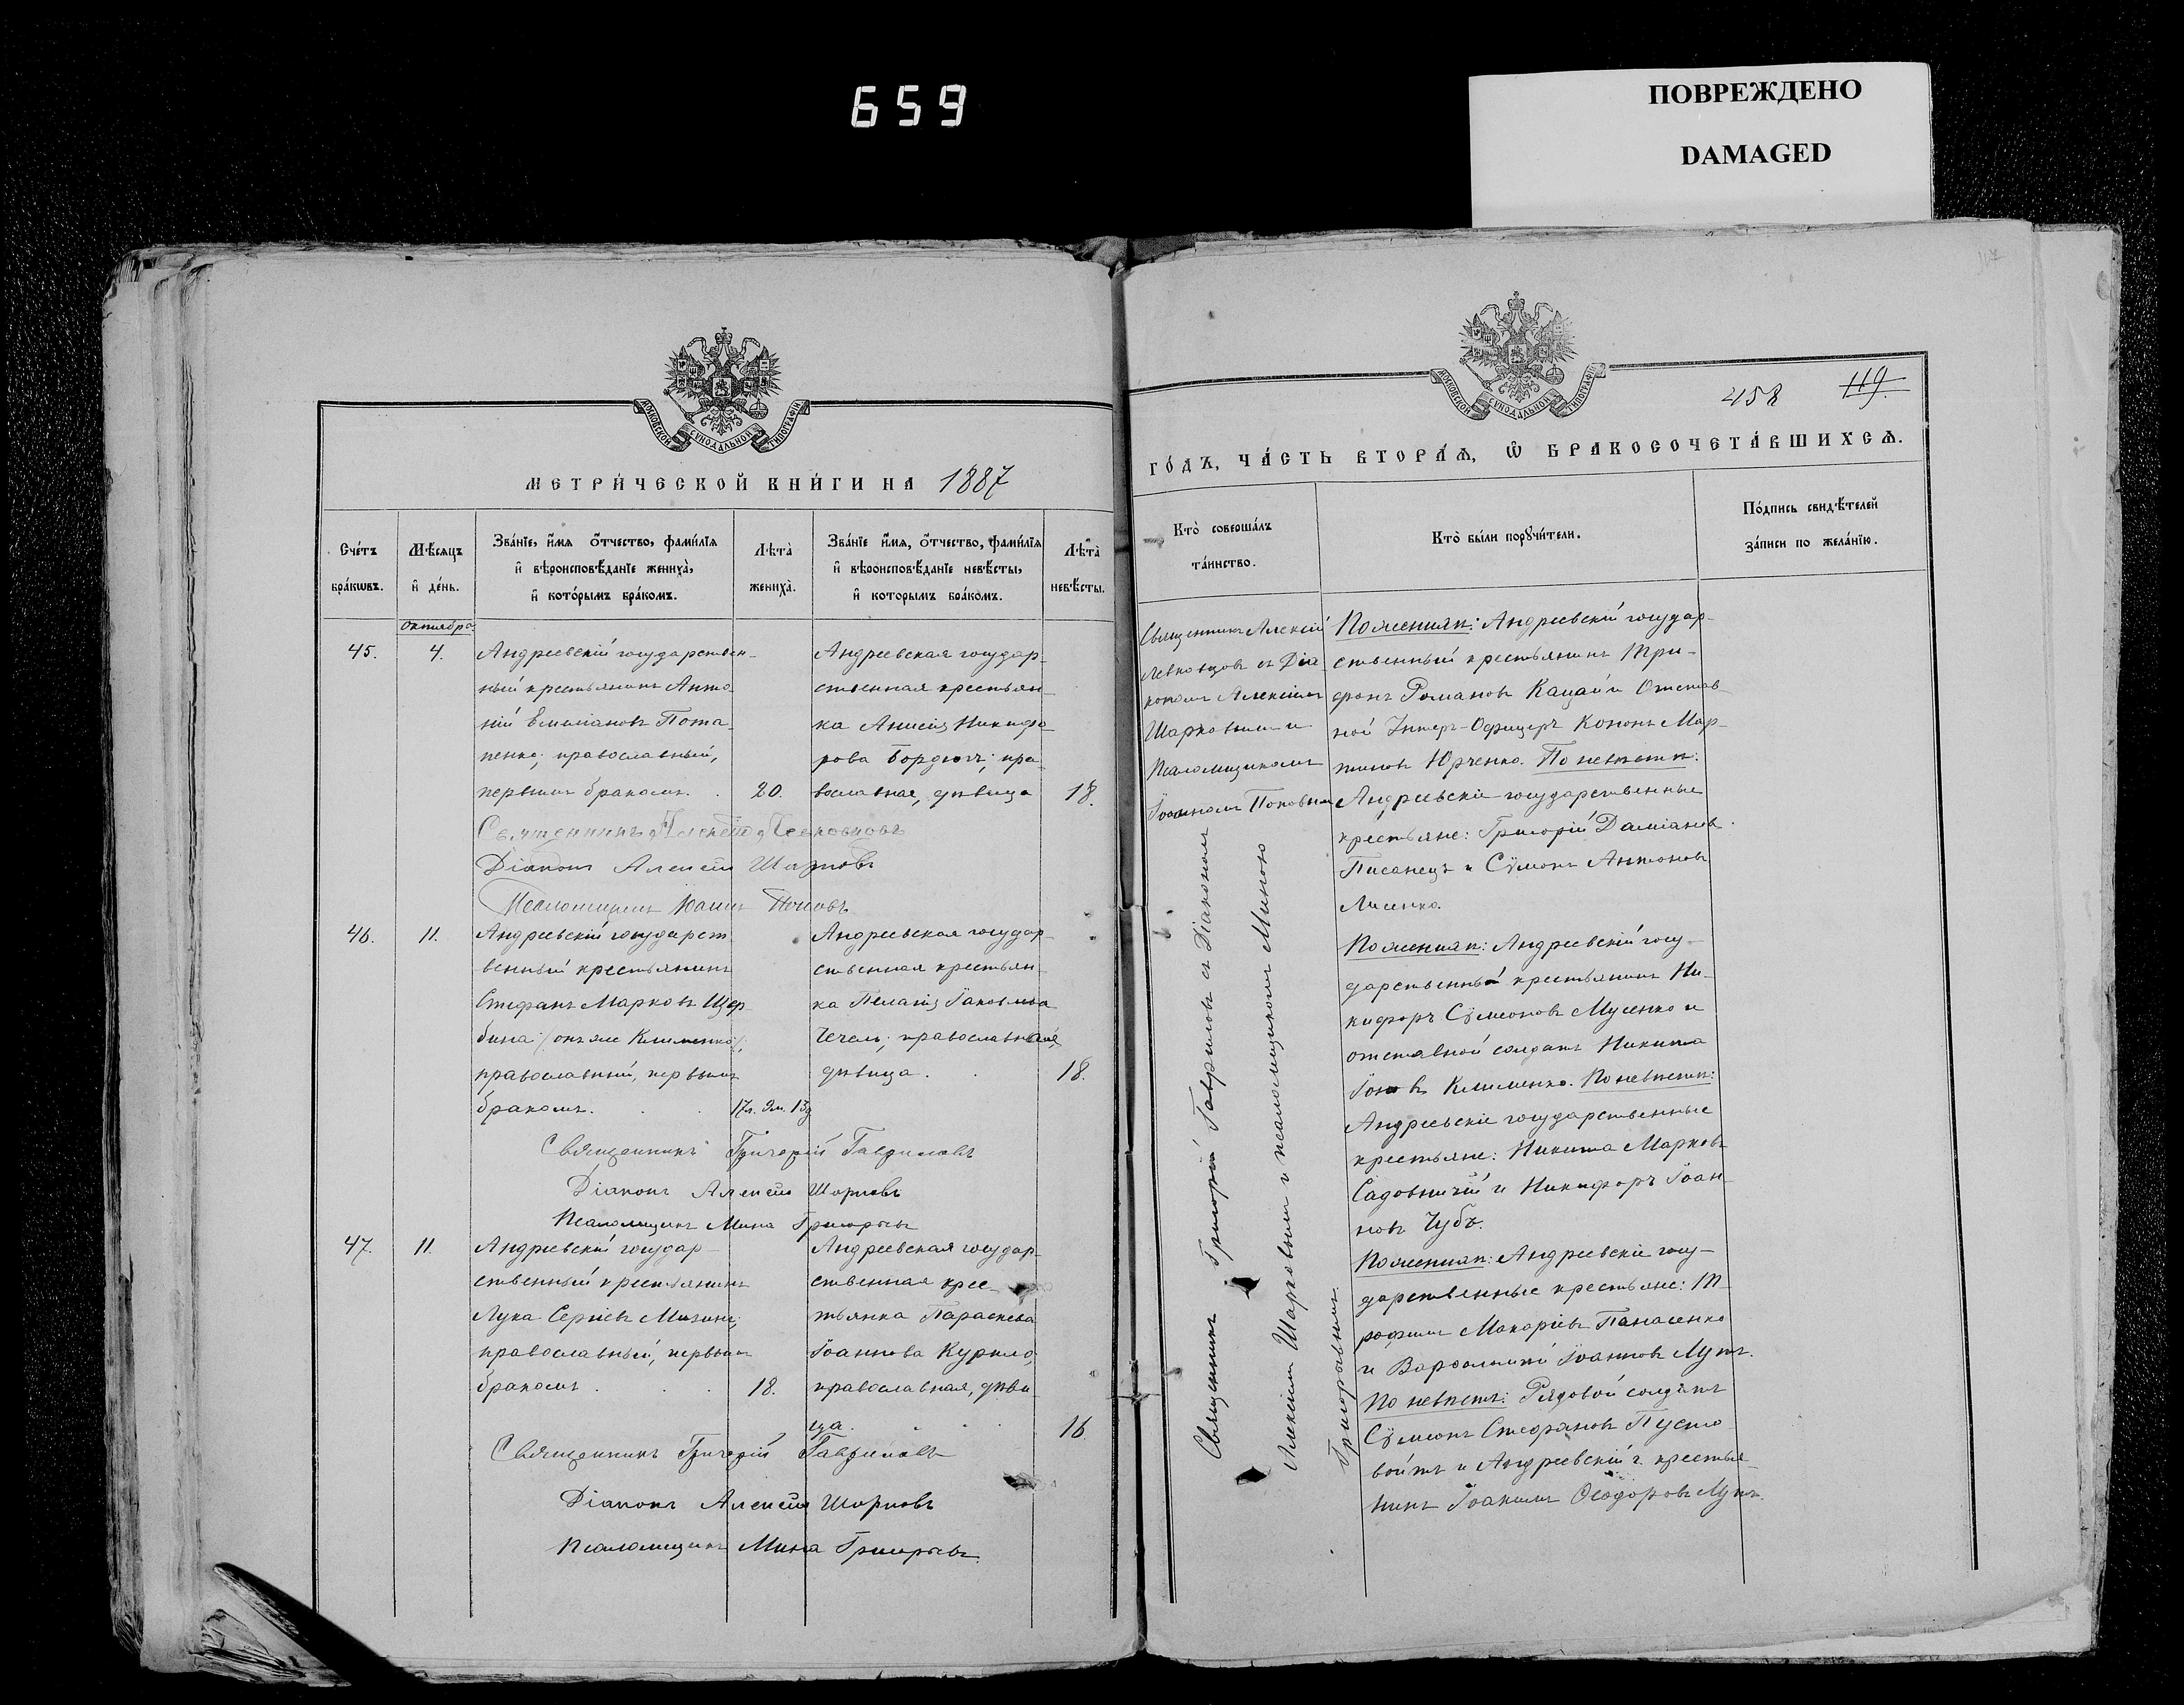 659
ПОВРЕЖДЕНО
DAMAGED
МОСКОВСКОЙ СУНОДАЛЬНОЙ ТИПОГРАФІИ
МЕТРИ́ЧЕСКОЙ КНИ́ГИ НА 1887
Сче́тъ бра́кѡвъ.
Мѣ́сѧцъ и҆ де́нь.
Зва́нїе, и҆́мѧ ѻ҆́тчество, фами́лїѧ
и҆ вѣроисповѣ́данїе жениха̀,
и҆ кото́рымъ бра́комъ.
Лѣта̀ жениха̀.
Зва́нїе и҆́мѧ, ѻ҆́тчество, фами́лїѧ
и҆ вѣроисповѣ́данїе невѣ́сты,
и҆ которымъ бра́комъ.
Лѣта̀ невѣ́сты.
Октября
45. 4.
Андреевскій государствен-
ный крестьянинъ Анто-
ній Емиліановъ Пота-
пенко; православный,
первымъ бракомъ. 20.
Андреевская государ-
ственная крестьян-
ка Анисія Никифо-
рова Бордюгъ; пра-
вославная, дѣвица 18.
Священникъ Алексѣй Левковцовъ
Діаконъ Алексѣй Шарковъ
Псаломщикъ Іоаннъ Поповъ
46. 11.
Андреевскій государст-
венный крестьянинъ
Стефанъ Марковъ Щер-
бина (онъ же Клименко),
православный, первымъ
бракомъ. 17л. 9м. 13д
Андреевская государ-
ственная крестьян-
ка Пелагія Іаковлева
Чечель; православная,
дѣвица. 18.
Священникъ Григорій Гавриловъ
Діаконъ Алексѣй Шарковъ
Псаломщикъ Мина Григорьевъ
47. 11.
Андреевскій государ-
ственный крестьянинъ
Лука Сергіевъ Мизинъ;
православный, первымъ
бракомъ. 18.
Андреевская государ-
ственная крес-
тьянка Параскева
Іоаннова Курило;
православная, дѣви-
ца. 16.
Священникъ Григорій Гавриловъ
Діаконъ Алексѣй Шарковъ
Псаломщикъ Мина Григорьевъ
117
МОСКОВСКОЙ СУНОДАЛЬНОЙ ТИПОГРАФІИ
458 119.
ГО́ДЪ, ЧА́СТЬ ВТОРА́Ѧ, Ѽ БРАКОСОЧЕТА́ВШИХСѦ.
Кто̀ соверша́лъ
та́инство.
Кто̀ бы́ли порꙋчи́тели.
По́дпись свидѣ́телей
за́писи по жела́нїю.
Священникъ Алексій
Левковцовъ съ Діа-
кономъ Алексіемъ
Шарковымъ и
Псаломщикомъ
Іоанномъ Поповымъ
По женихѣ: Андреевскій государ-
ственный крестьянинъ Три-
фонъ Романовъ Кацай и Отстав-
ной Унтеръ-Офицеръ Кононъ Мар-
тиновъ Юрченко. По невѣстѣ:
Андреевскіе государственные
крестьяне: Григорій Даміановъ
Писанецъ и Сѵмонъ Антоновъ
Лисенко.
Священникъ Григорій Гавриловъ съ Діакономъ
Алексіемъ Шарковымъ и псаломщикомъ Миною
Григорьевымъ
По женихѣ: Андреевскій госу-
дарственный крестьянинъ Ни-
кифоръ Сѵмеоновъ Мусенко и
отставной солдатъ Никита
Клименко. По невѣстѣ:
Андреевскіе государственные
крестьяне: Никита Марковъ
Садовничій и Никифоръ Іоан-
новъ Чубъ.
По женихѣ: Андреевскіе госу-
дарственные крестьяне: Т-
рофимъ Макаріевъ Панасенко
и Варѳоломій Іоанновъ Лупъ.
По невѣстѣ: Рядовой солдатъ
Сѵмеонъ Стефановъ Пусто-
войтъ и Андреевскій г. крестья-
нинъ Іоакимъ Ѳеодоровъ Лупъ.